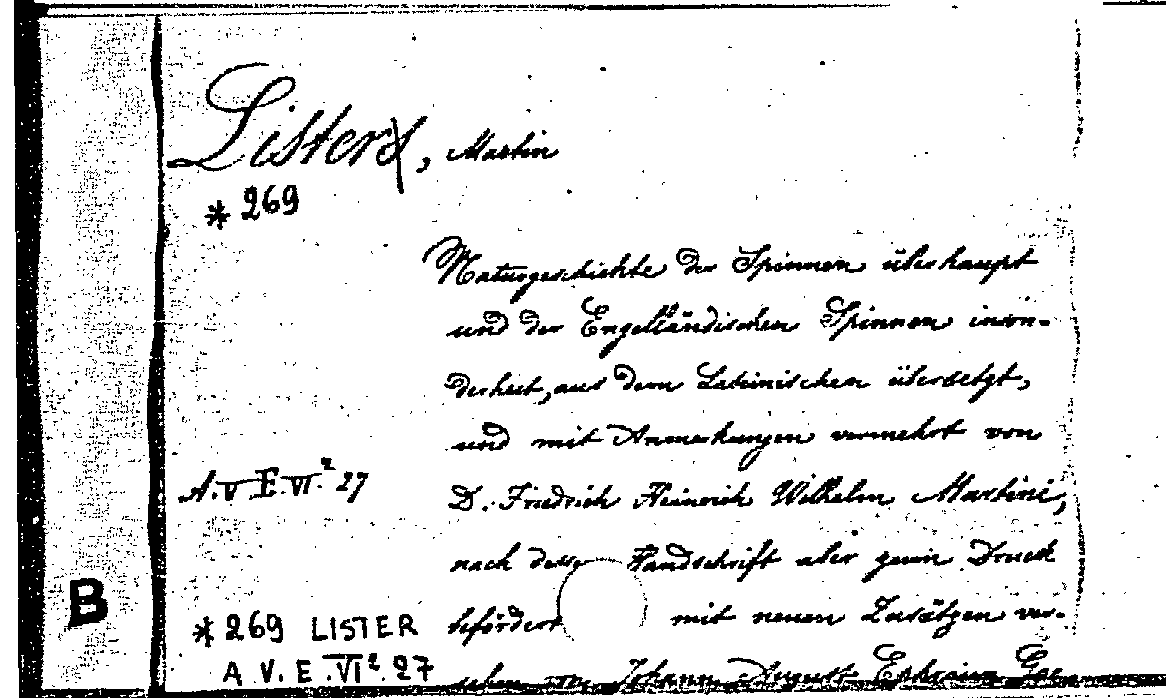 Lister, Martin
* 269
Naturgeschichte der Spinnen überhaupt
und der Engelländischen Spinnen inson-
derheit, aus dem Lateinischen übersetzt,
und mit Anmerkungen vermehrt von
A.V.E.VI.² 27
D. Friedrich Heinrich Wilhelm Martini,
nach dess Handschrift aber zum Druck
B
* 269 LISTER
befördert mit neuen Zusätzen ver-
A V.E.VI².27
sehen von Johann August Ephraim Goe